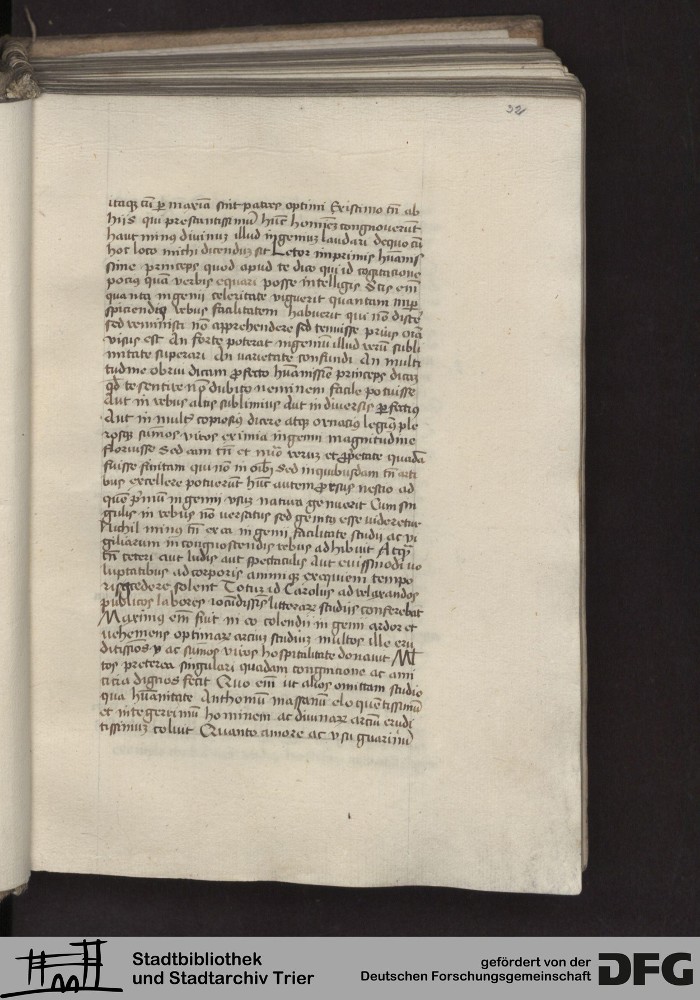 32
itaqz cū ꝑ maxīa sint patres optimi Existimo tn̄ ab
hiis qui prestantissimū hūc hominez congnouerūt
haut minus diuinuz illud ingeniuz laudari de quo cū
hoc loco michi dicendum sit Letor imprimis hūanis
sime princeps quod apud te dico qui id cogitacione
pocius quā verbis equari posse intelligis Scis em̄
quanta ingenii celeritate viguerit quantam in ꝑ
spiciendis rebus facilitatem habuerit qui nō discē
sed reminisci nō apprehendere sed tenuisse prius oīa
visus est An forte poterat ingeniū illud rerū subli
mitate superari An varietate confundi An multi
tudine obrui dicam ꝓfecto hūanissīe princeps dicaz
qd̄ te sentire nō dubito neminem facile potuisse
Aut in rebus altis sublimius Aut in diuersis ꝑfectius
Aut in mult̄ copiosius dicere atqz ornacius legim9 ple
rosqz sūmos viros eximia ingenii magnitudine
floruisse Sed eam tn̄ et
fuisse finitam qui nō in oībz sed in quibusdam tn̄ arti
bus excellere potuerūt hūc autem ꝓrsus nescio ad
quē p̄mū ingenii vsuz natura genuerit Cum sin
gulis in rebus nō versatus sed genitus esse videretur
Nichil minus tn̄ ex ea ingenii facilitate studii ac vi
giliarum in congnoscendis rebus adhibuit Atqz
tn̄ ceteri aut ludis aut spectaculis Aut euissmodi vo
luptatibus ad corporis animiqz requiem tempo
ris cedere solent Totuz id Carolus ad relaxandos
publicos labores iocūdissīs litterarz studiis conferebat
Maximus em̄ fuit in eo colendii ingenii ardor et
vehemens optimarz arcium studiuz multos ille eru
ditissīos ac sūmos viros hospitalitate donauit Ml̄
tos preterea singulari quadam congnicione ac ami
cicia dignos fecit Quo em̄ ut alios omittam studio
qua hūanitate Anthoniū massanū eloquētissimū
et integerrimū hominem ac diuinarz arciū erudi
tissimuz coluit Quanto amore ac vsu guarinū
Stadtbibliothek
und Stadtarchiv Trier
gefördert von der
Deutschen Forschungsgemeinschaft
DFG